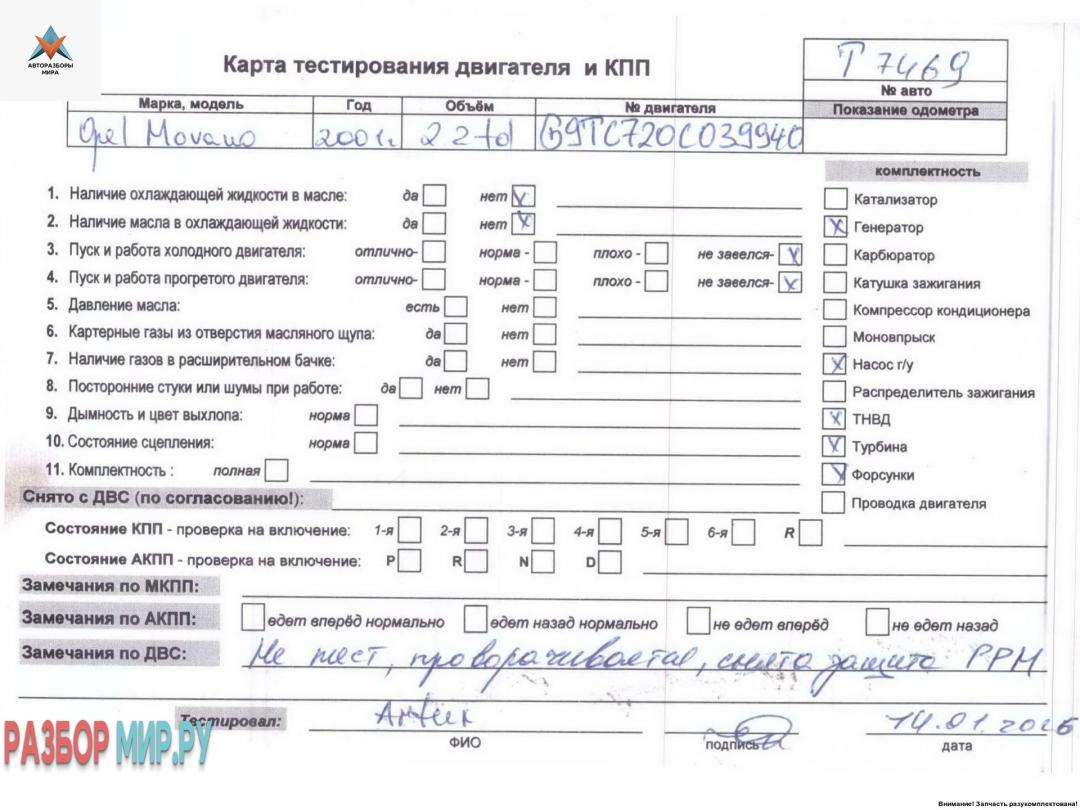 АВТОРАЗБОРЫ
МИРА
Карта тестирования двигателя и КПП
Т 7469
№ авто
Марка, модель Год Объём № двигателя Показание одометра
Opel Movano 2001г. 2 2 td G9TC720C039940
комплектность
1. Наличие охлаждающей жидкости в масле: да нет
Катализатор
2. Наличие масла в охлаждающей жидкости: да нет
Генератор
3. Пуск и работа холодного двигателя: отлично- норма - плохо - не завелся-
Карбюратор
4. Пуск и работа прогретого двигателя: отлично- норма - плохо - не завелся-
Катушка зажигания
5. Давление масла: есть нет
Компрессор кондиционера
6. Картерные газы из отверстия масляного щупа: да нет
Моновпрыск
7. Наличие газов в расширительном бачке: да нет
Насос г/у
8. Посторонние стуки или шумы при работе: да нет
Распределитель зажигания
9. Дымность и цвет выхлопа: норма
ТНВД
10. Состояние сцепления: норма
Турбина
11. Комплектность : полная
Форсунки
Снято с ДВС (по согласованию!):
Проводка двигателя
Состояние КПП - проверка на включение: 1-я 2-я 3-я 4-я 5-я 6-я R
Состояние АКПП - проверка на включение: P R N D
Замечания по МКПП:
Замечания по АКПП: едет вперёд нормально едет назад нормально не едет вперёд не едет назад
Замечания по ДВС: Не тест, проворачивается, снята защита ГРМ
Тестировал:
ФИО
подпись
14.01.2026
дата
РАЗБОРМИР.РУ
Внимание! Запчасть разукомплектована!